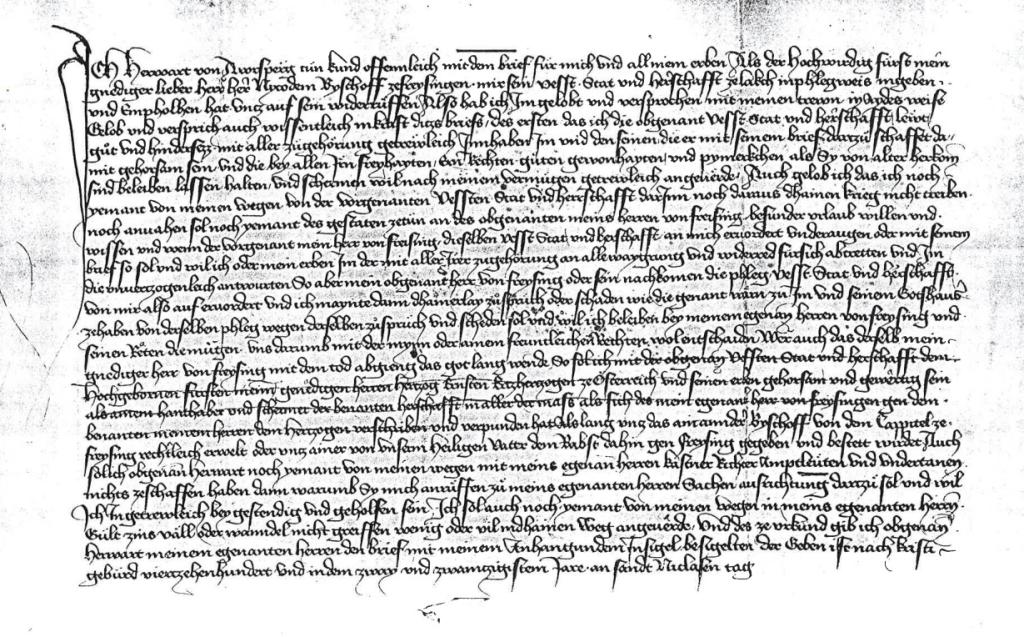 Ich Herwart von Awrsperg tün kund offennleich mit dem brief für mich und all mein erben Als der Hochwirdig fürst mein
gnediger lieber Herr her Nycodem Byschoff ze freysingen mir sein Vesst Stat und Herschafft ze Lakch in phlegweis ingeben
und Emphollhen hat Untz auf sein widerrüffen Also hab ich Im gelobt und versprochen mit meinen trewen in Aydes weise
Glob und versprich auch wissentleich in krafft ditz briefs des ersten das ich die obgenant Vesst Stat und herschafft lewt
güt und hindersez mit aller zügehörung getrewleich Innhaben Im und den seinen die er mit seinem brief dartzü schaffet da
mit gehorsam sein und die bey allen Iren freyhayten Eren Rechten güten gewonhayten und pymerkchen als Sy von alter herkom
sind beleiben lassen halten und schermen wil nach meinem vermügen getrewleich angeuerde Auch gelob ich das ich noch
yemant von meinen wegen von der vorgenanten Vessten Stat und herschafft darInn noch daraus dhainen krieg nicht treiben
noch anuahen sol noch yemant des gestaten zetün an des obgenanten meins herren von freising besunder urlaub willen und
wissen und wenn der vorgenant mein herr von freising dieselben Vesst Stat und herschafft an mich eruordert underaugen oder mit seinem
brief so sol und wil ich oder mein erben Im der mit aller Irer zügehörung an alle waygrung und widerred fürsich abtretten und Im
die unuertzogenlich antwurten So aber mein obgenant herr von freysing oder sein nachkomen die phleg Vesst Stat und herschafft
von mir also auf eruordert und ich maynte dann dhainerlay züsprüch oder schäden wie die genant wärn zü Im und seinem Gotshaus
zehaben von derselben phleg wegen derselben züsprüch und scheden sol und wil ich beleiben bey meinem egenan herren von freysing und
seinen Reten die mügen uns darumb mit der mynn oder ainem freuntleichen Rechten wol entschaiden Wer auch das derselb mein
gnediger herr von freysing mit dem tod abgieng das got lang wende So sol ich mit der obgenan Vessten Stat und herschafft dem
Hochgebornen fürsten meinem genedigen herren hertzog Ernsten Ertzhertzogen ze Österreich und seinen erben gehorsam und gewertig sein
als ainem hanthaber und schermer der benanten herschafft in aller der mass als sich des mein egenant herr von freysingen gen dem
benanten meinem herren dem hertzogen verschriben und verpunden hat Als lang untz das ain ander Byschoff von dem Capptel ze
freysing rechtleich erwelt oder untz ainer von unserm Heiligen Vater dem Babst dahin gen freysing gegeben und bestett wirdet Auch
sol ich obgenan Herwart noch yemant von meinen wegen mit meins egenan herren kastner Richter Amptleuten und undertanen
nichts ze schaffen haben dann warumb Sy mich anrüffen zü meins egenanten herren Sachen ausrichtung dartzü sol und wil
Ich In getrewleich bey gestendig und geholfen sein Ich sol auch noch yemant von meinen wegen in meins egenanten herren
Gült zins väll oder wanndel nicht greiffen wenig oder vil in dhainen weg angeuerde Und des ze urkünd gib ich obgenan
Herwart meinem egenanten herren den brief mit meinem Anhangundem Insigel besigelten der Geben ist nach kristi
gebürd viertzehenhundert und in dem zway und zwaintzigistem Jare an sandt Niclasen tag